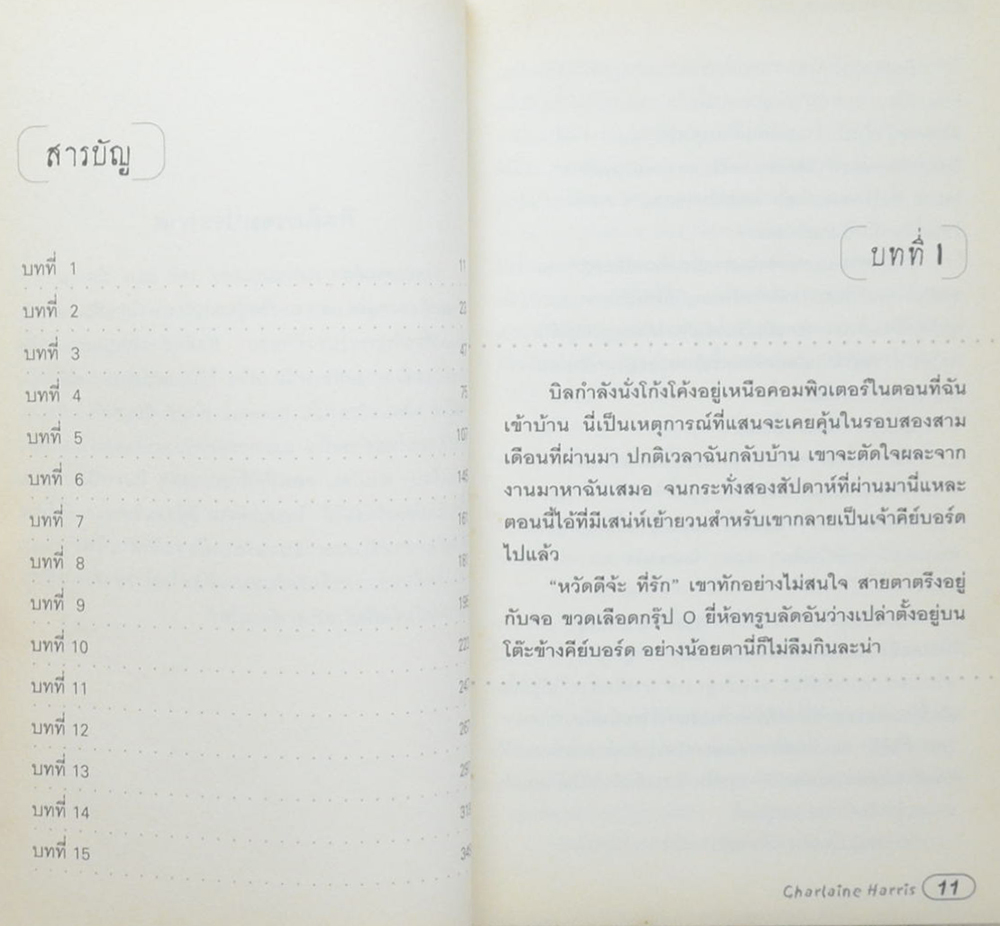 สารบัญ
บทที่ 1 11
บทที่ 2
บทที่ 3 47
บทที่ 4 75
บทที่ 5 107
บทที่ 6
บทที่ 7
บทที่ 8
บทที่ 9
บทที่ 10
บทที่ 11
บทที่ 12
บทที่ 13
บทที่ 14
บทที่ 15
บทที่ 1
บิลกำลังนั่งโก้งโค้งอยู่เหนือคอมพิวเตอร์ในตอนที่ฉัน
เข้าบ้าน นี่เป็นเหตุการณ์ที่แสนจะเคยคุ้นในรอบสองสาม
เดือนที่ผ่านมา ปกติเวลาฉันกลับบ้าน เขาจะตัดใจผละจาก
งานมาหาฉันเสมอ จนกระทั่งสองสัปดาห์ที่ผ่านมานี่แหละ
ตอนนี้ไอ้ที่มีเสน่ห์เย้ายวนสำหรับเขากลายเป็นเจ้าคีย์บอร์ด
ไปแล้ว
“หวัดดีจ้ะ ที่รัก” เขาทักอย่างไม่สนใจ สายตาตรึงอยู่
กับจอ ขวดเลือดกรุ๊ป O ยี่ห้อทรูบลัดอันว่างเปล่าตั้งอยู่บน
โต๊ะข้างคีย์บอร์ด อย่างน้อยตานี่ก็ไม่ลืมกินละน่า
Charlaine Harris 11